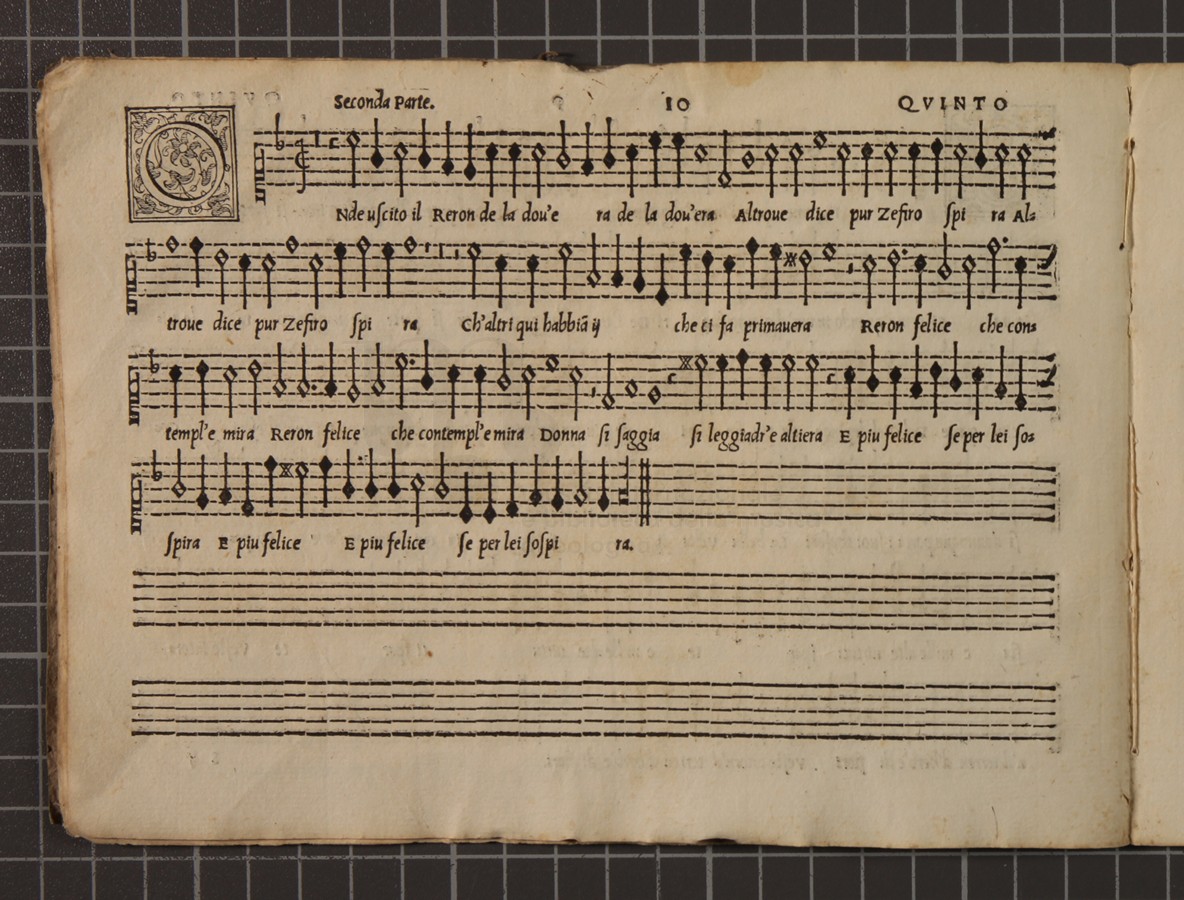 Seconda Parte. 10 QVINTO
ONde uſcito il Reron de la dou'e ra de la dou'era Altroue dice pur Zefiro ſpi ra Al=
troue dice pur Zefiro ſpi ra Ch'altri qui habbiā ij che ci fa primauera Reron felice che con=
templ'e mira Reron felice che contempl'e mira Donna ſi ſaggia ſi leggiadr'e altiera E piu felice ſe per lei ſo=
ſpira E piu felice E piu felice ſe per lei ſoſpi ra.